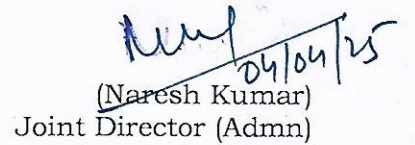 04/04/25
(Naresh Kumar)
Joint Director (Admn)